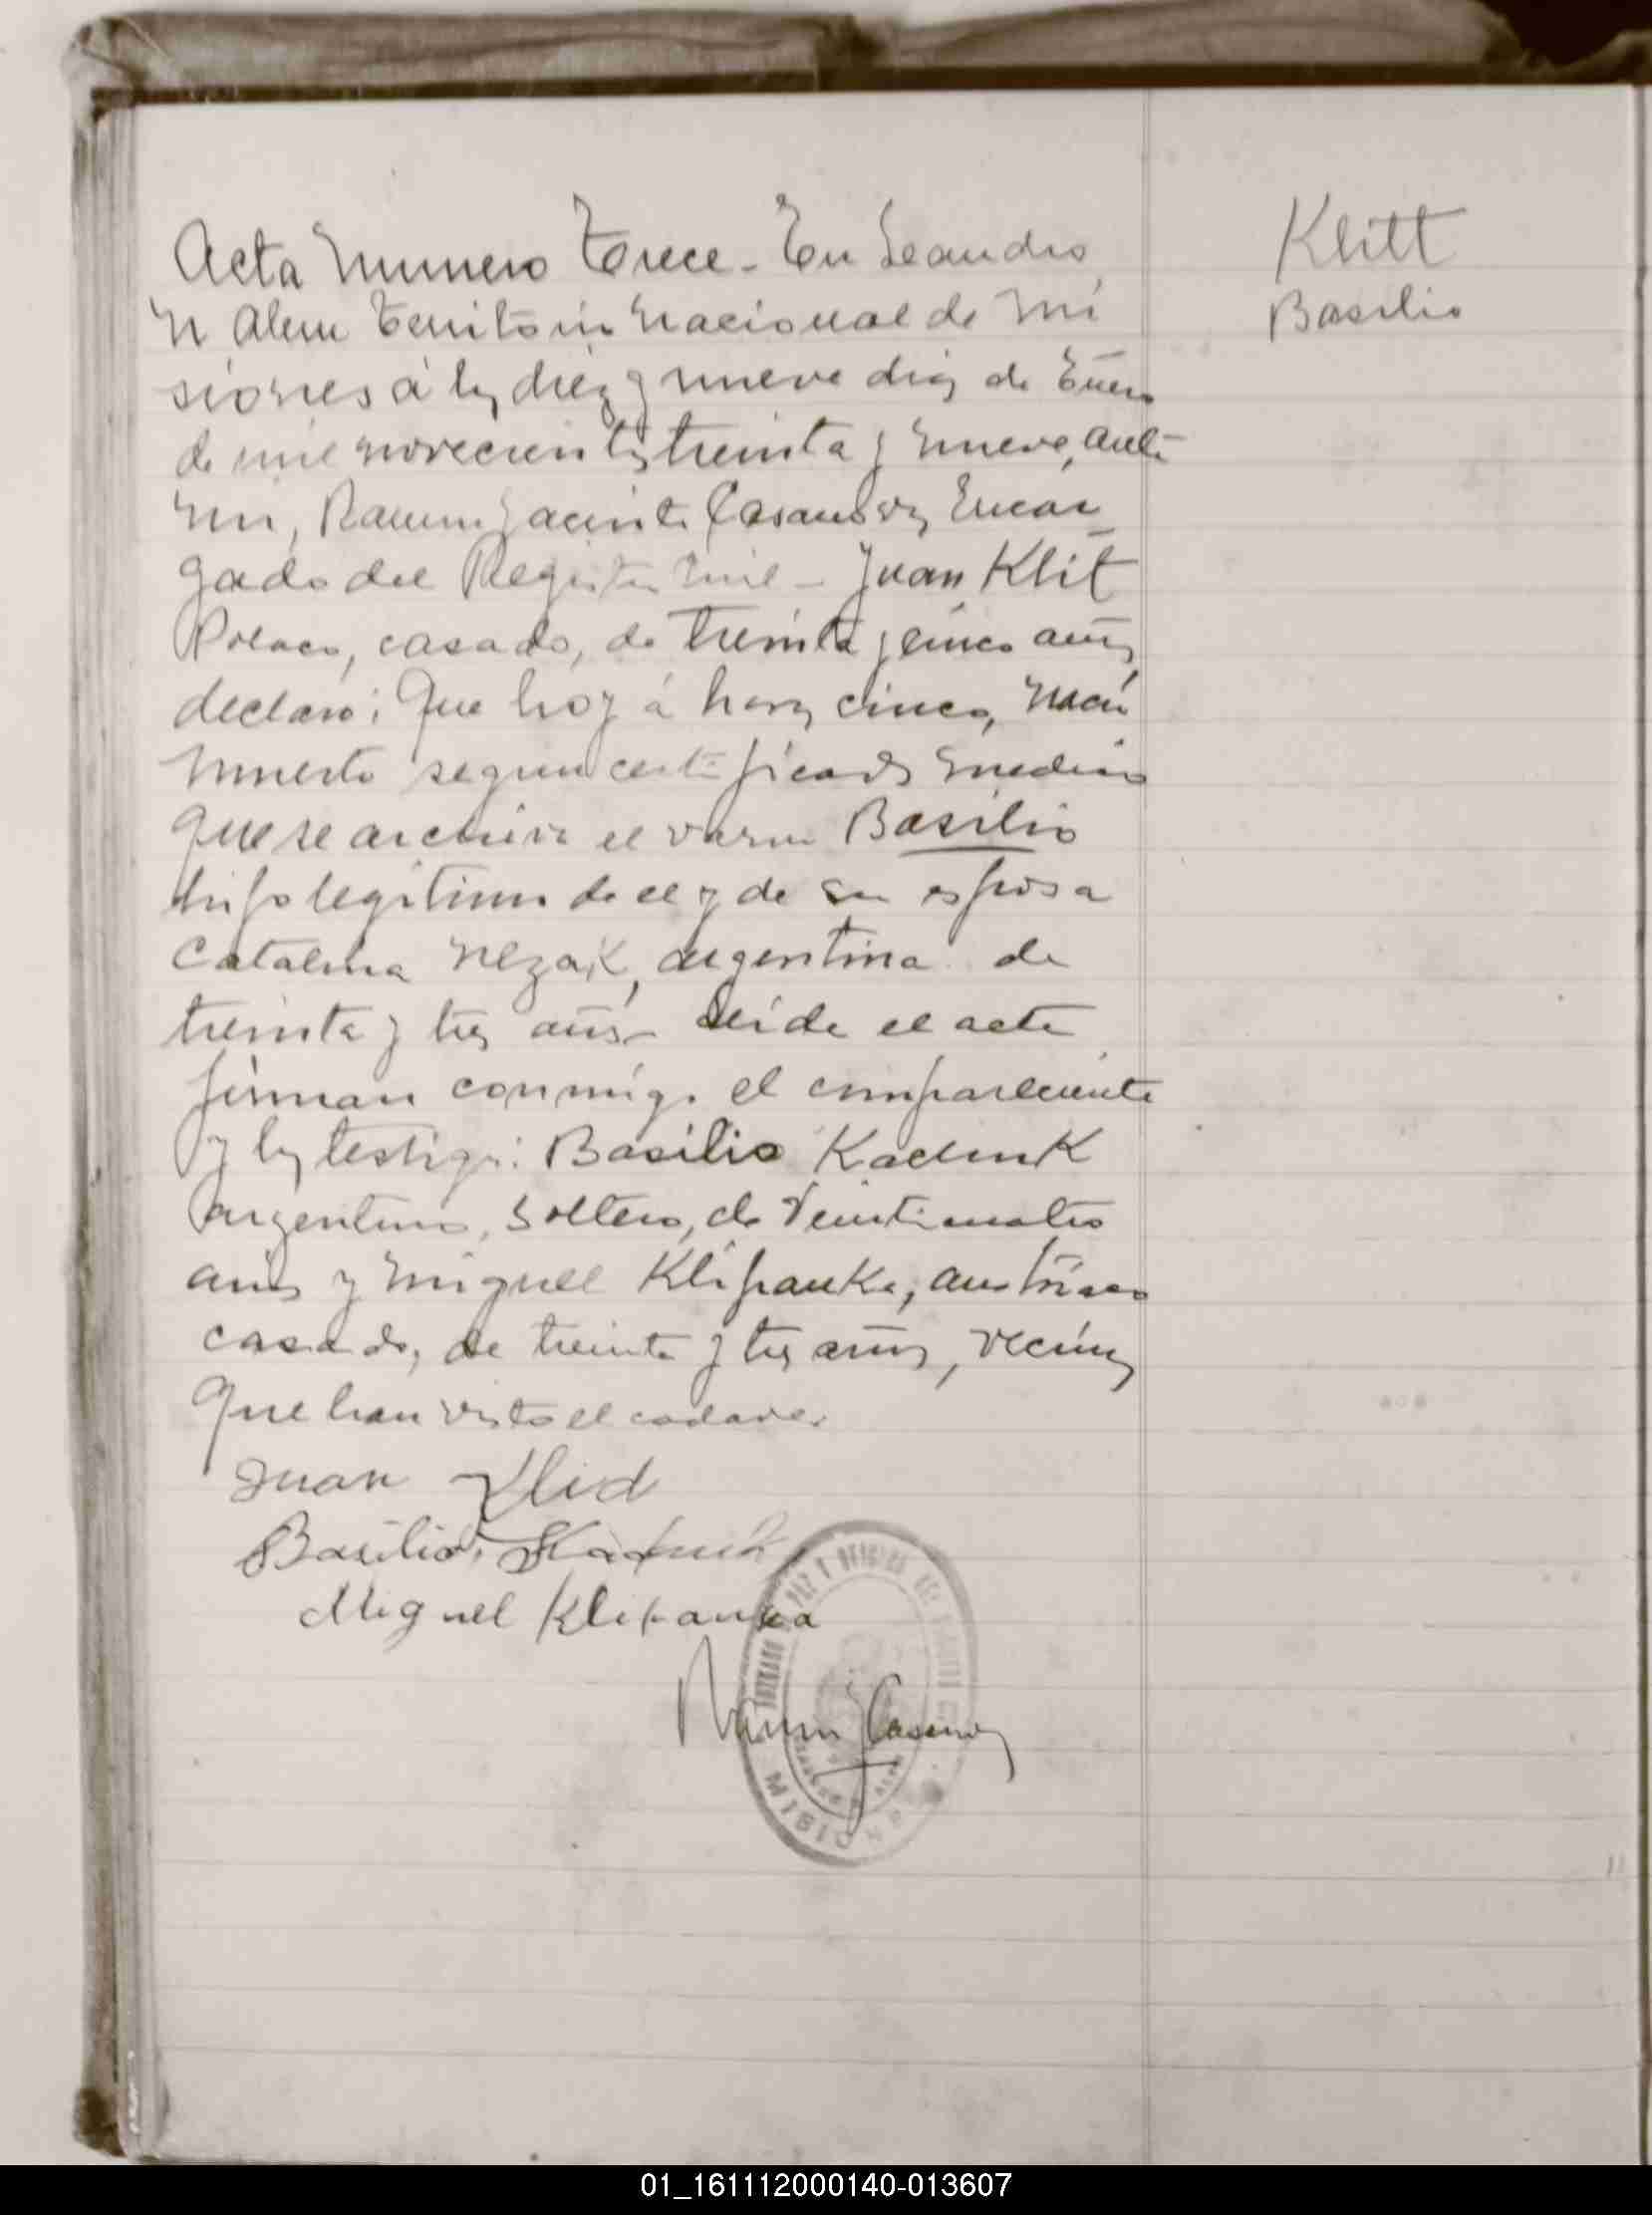 Acta Numero Trece - En Leandro
N Alem Territorio Nacional de Mi
siones á los diez y nueve dias de Enero
de mil novecientos treinta y nueve, ante
mi, Ramon Jacinto Casanova, Encar
gado del Registro Civil - Juan Klit
Polaco, casado, de treinta y cinco años
declaro: Que hoy á horas cinco, nació
muerto segun certificado medico
que se archiva el varon Basilio
hijo legitimo de el y de su esposa
Catalina Nezak, argentina de
treinta y tres años - Leida el acta
firman conmigo el compareciente
y los testigos: Basilio Kadluk
argentino, soltero, de veinticuatro
años y Miguel Klipauka, austriaco
casado, de treinta y tres años, vecinos
que han visto el cadaver
Juan Klid
Basilio
Miguel Klipauka
Ramon J Casanova
Klitt
Basilio
01_161112000140-013607